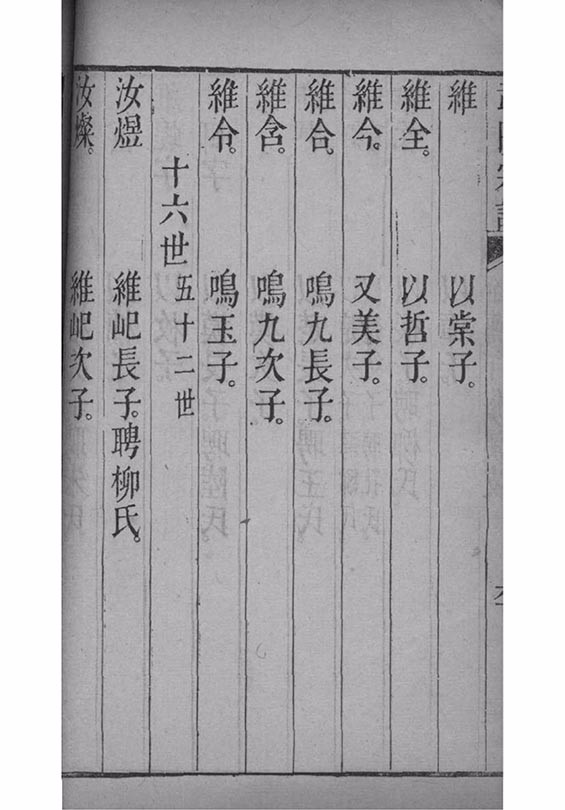 維　以棠子。
維全。　以哲子。
維今。　又美子。
維合。　鳴九長子。
維含。　鳴九次子。
維令。　鳴玉子。
十六世　五十二世
汝煜　維屺長子。聘柳氏。
汝燦。　維屺次子。